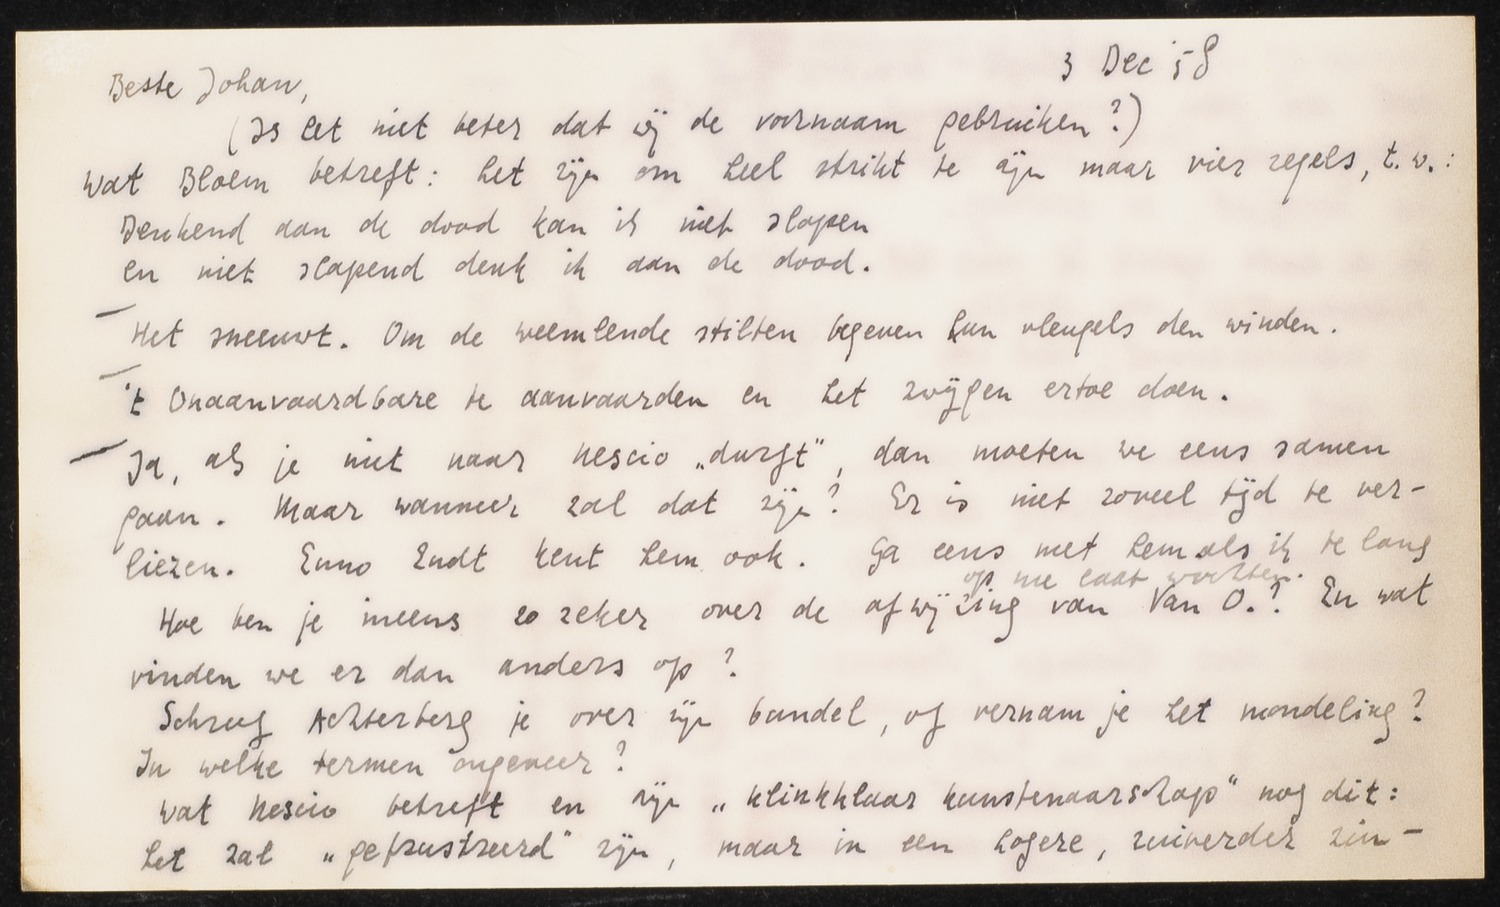 3 Dec '58
Beste Johan,
(Is het niet beter dat wij de voornaam gebruiken?)
Wat Bloem betreft: het zijn om heel strikt te zijn maar vier regels, t.w.:
Denkend aan de dood kan ik niet slapen
en niet slapend denk ik aan de dood.
— Het sneeuwt. Om de weemlende stilten begeven hun vleugels den winden.
— 't Onaanvaardbare te aanvaarden en het zwijgen ertoe doen.
— Ja, als je niet naar Nescio „durft”, dan moeten we eens samen
gaan. Maar wanneer zal dat zijn? Er is niet zoveel tijd te ver-
liezen. Enno Endt kent hem ook. Ga eens met hem als ik te lang
op me laat wachten.
Hoe ben je ineens zo zeker over de afwijzing van Van O.? En wat
vinden we er dan anders op?
Schreef Achterberg je over zijn bundel, of vernam je het mondeling?
In welke termen ongeveer?
Wat Nescio betreft en zijn „klinkklaar kunstenaarschap” nog dit:
het zal „gefrustreerd” zijn, maar in een hogere, zuiverder zin —